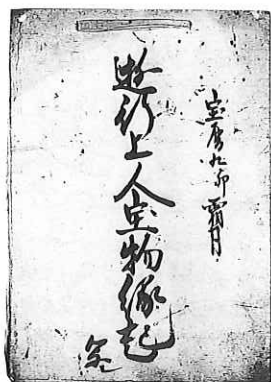 宝暦九卯霜月
遊行上人宝物縁起